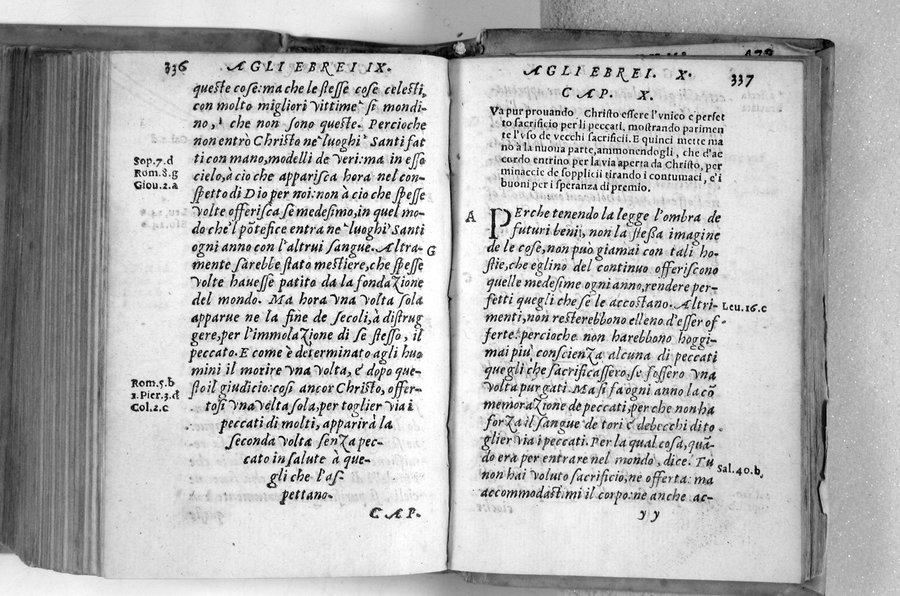 336 AGLI EBREI IX.
queste cose: ma che le stesse cose celesti,
con molto migliori vittime si mondi-
no, che non sono queste. Percioche
non entrò Christo ne' luoghi Santi fat
ti con mano, modelli de veri: ma in esso
cielo, à cio che apparisca hora nel con-
spetto di Dio per noi: non à cio che spesse
volte offerisca se medesimo, in quel mo-
do che'l põtefice entra ne' luoghi Santi
ogni anno con l'altrui sangue. Altra-
mente sarebbe stato mestiere, che spesse
volte hauesse patito da la fondazione
del mondo. Ma hora vna volta sola
apparue ne la fine de secoli, à distrug
gere, per l'immolazione di se stesso, il
peccato. E come è determinato agli huo
mini il morire vna volta, e dopo que-
sto il giudicio: cosi ancor Christo, offer-
tosi vna volta sola, per toglier via i
peccati di molti, apparirà la
seconda volta senza pec-
cato in salute à que-
gli che l'as-
pettano.
CAP.
Sop.7.d
Rom.8.g
Giou.2.a
G
Rom.5.b
1.Pier.3.d
Col.2.c
AGLI EBREI. X. 337
CAP. X.
Va pur prouando Christo essere l'vnico e perfet
to sacrificio per li peccati, mostrando parimen
te l'vso de vecchi sacrificii. E quinci mette ma
no à la nuoua parte, ammonendogli, che d'ac
cordo entrino per la via aperta da Christo, per
minaccie de sopplicii tirando i contumaci, e'i
buoni per i speranza di premio.
A
PErche tenendo la legge l'ombra de
futuri beni, non la stessa imagine
de le cose, non può giamai con tali ho-
stie, che eglino del continuo offeriscono
quelle medesime ogni anno, rendere per-
fetti quegli che se le accostano. Altri-
menti, non resterebbono elleno d'esser of
ferte: percioche non harebbono hoggi-
mai più conscienza alcuna di peccati
quegli che sacrificassero, se fossero vna
volta purgati. Ma si fa ogni anno la cõ
memorazione de peccati, perche non ha
forza il sangue de tori e de becchi di to
glier via i peccati. Per la qual cosa, quã-
do era per entrare nel mondo, dice. Tu
non hai voluto sacrificio, ne offerta: ma
accommodastimi il corpo: ne anche ac-
yy
Leu.16.c
Sal.40.b